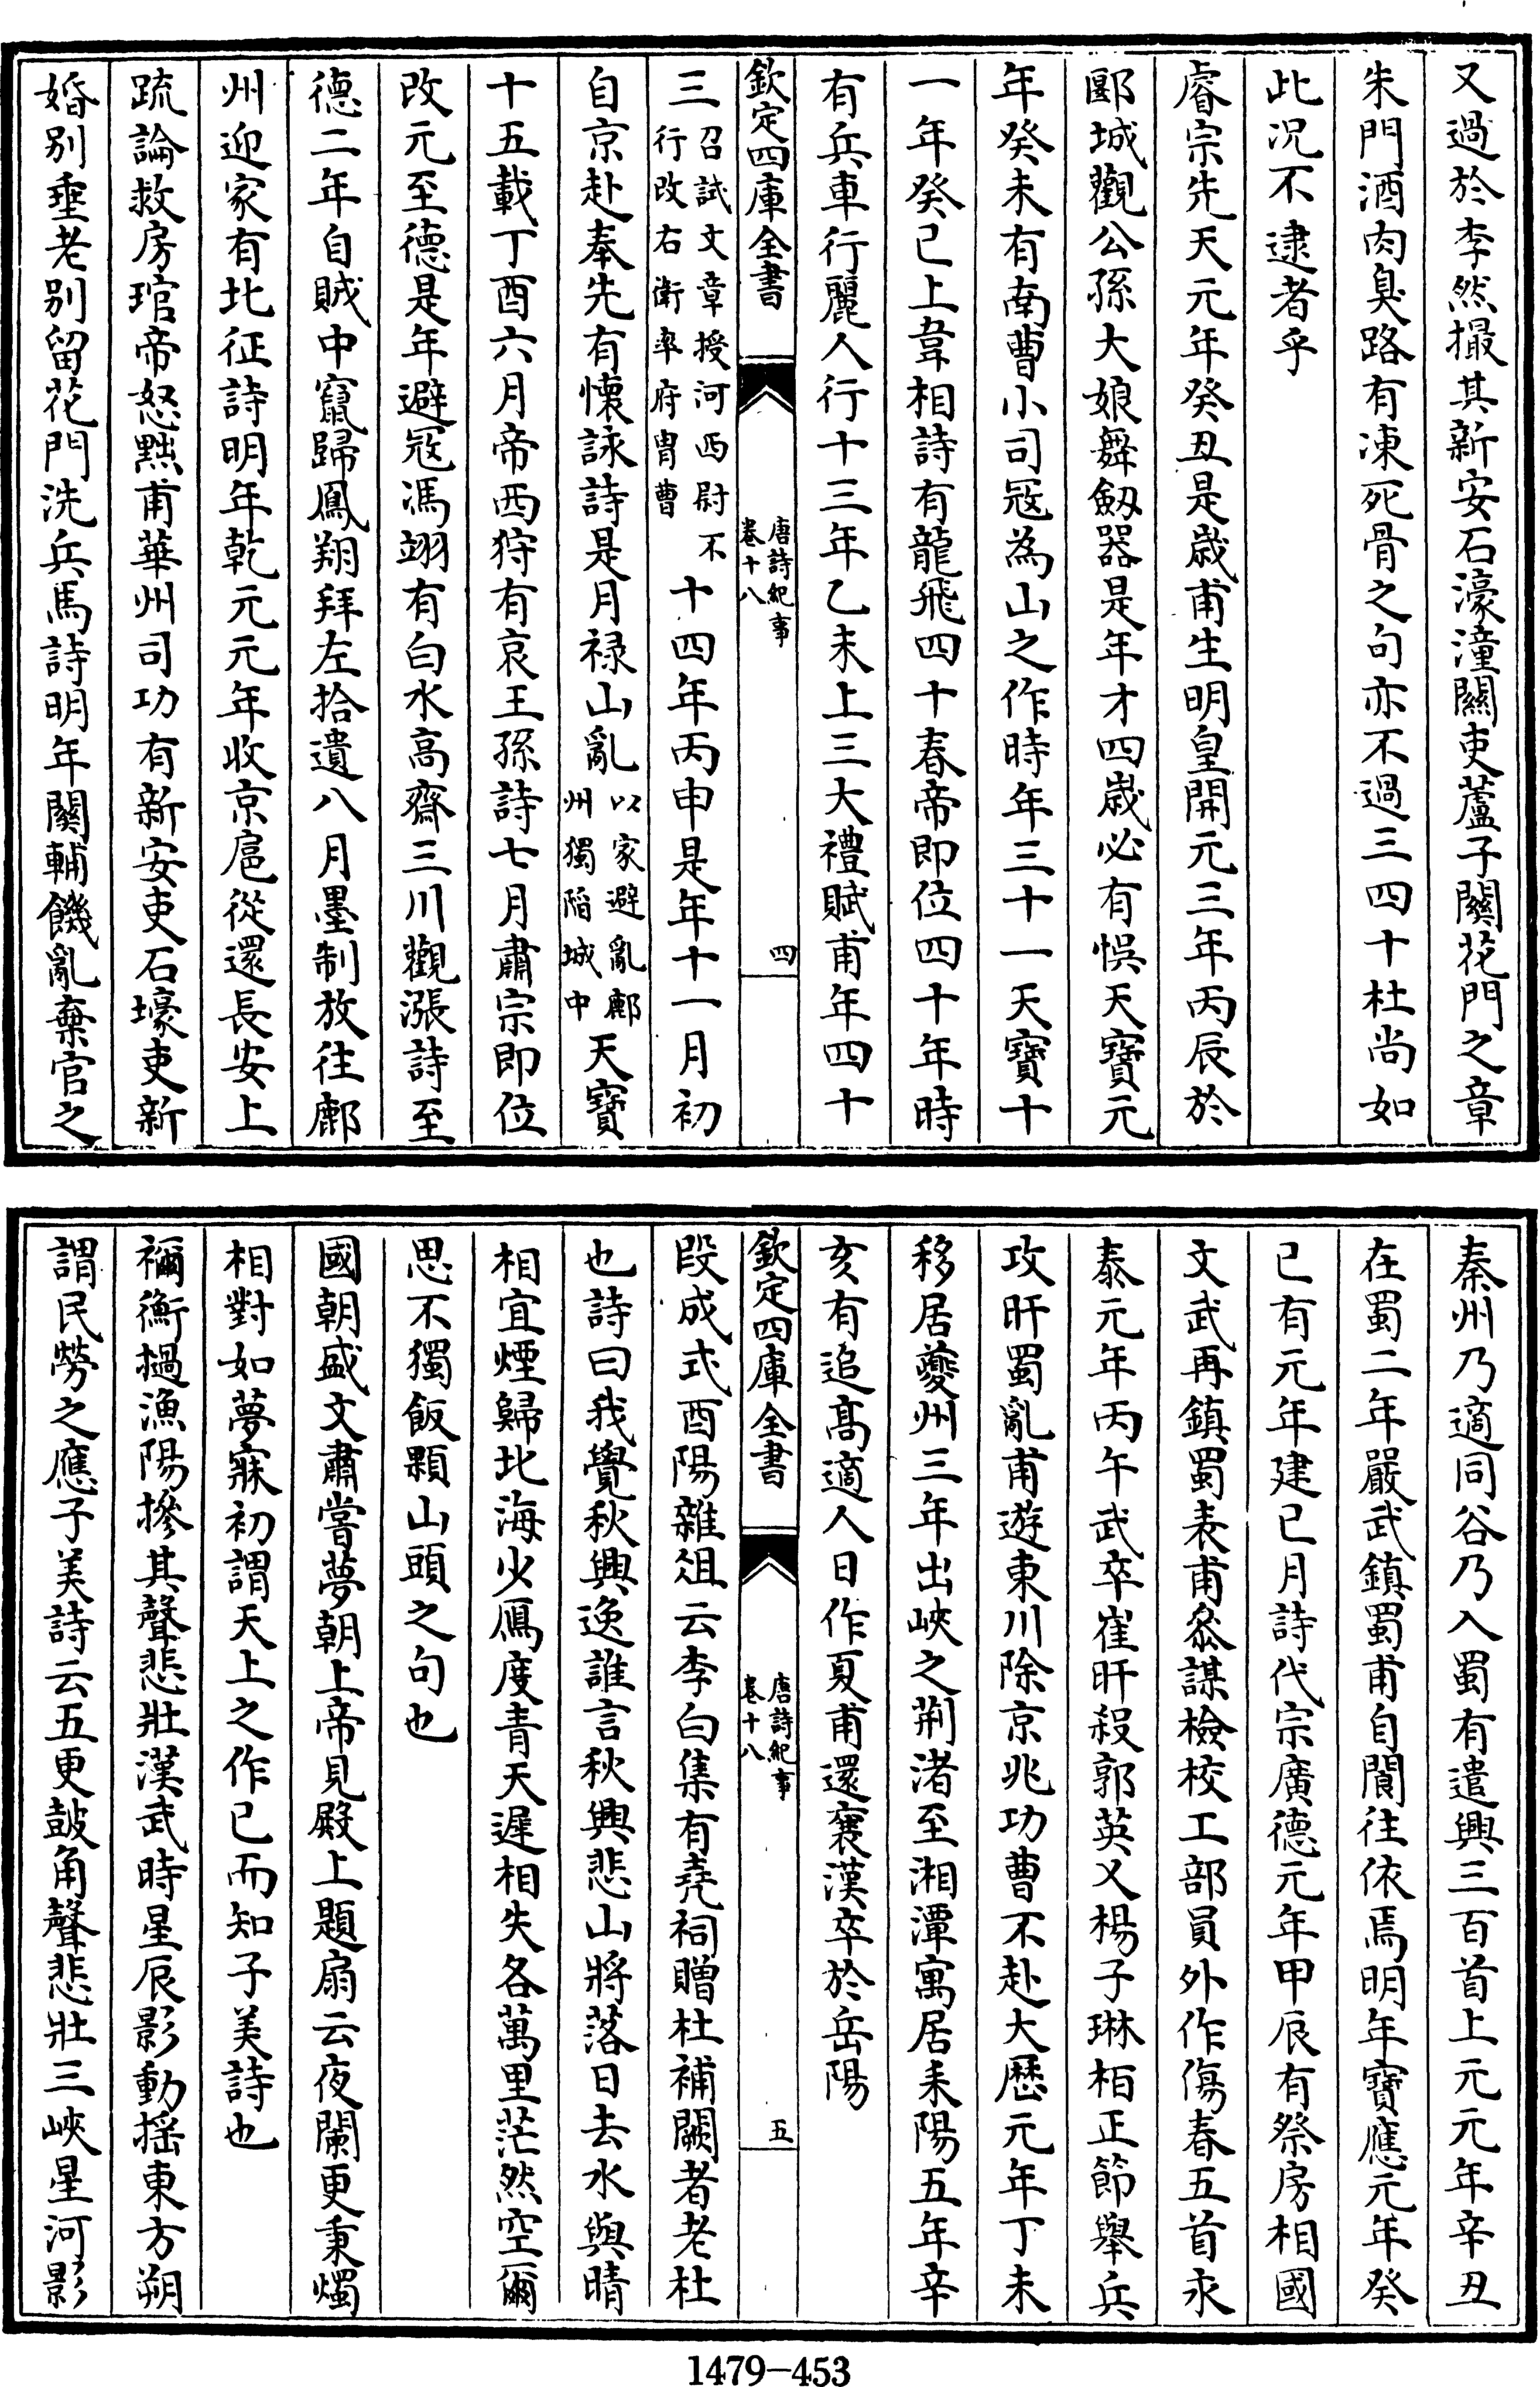 又過於李然撮其新安石濠潼關吏蘆子關花門之章
朱門酒肉臭路有凍死骨之句亦不過三四十杜尚如
此况不逮者乎
睿宗先天元年癸丑是歳甫生明皇開元三年丙辰於
郾城觀公孫大娘舞劔器是年才四歳必有悞天寶元
年癸未有南曹小司冦為山之作時年三十一天寶十
一年癸巳上韋相詩有龍飛四十春帝即位四十年時
有兵車行麗人行十三年乙未上三大禮賦甫年四十
欽定四庫全書
唐詩紀事
卷十八
四
三召試文章授河西尉不
行改右衛率府胄曹
十四年丙申是年十一月初
自京赴奉先有懐詠詩是月禄山亂以家避亂鄜
州獨陷城中
天寶
十五載丁酉六月帝西狩有哀王孫詩七月肅宗即位
改元至德是年避冦馮翊有白水高齋三川觀漲詩至
德二年自賊中竄歸鳳翔拜左拾遺八月墨制放往鄜
州迎家有北征詩明年乾元元年收京扈從還長安上
疏論救房琯帝怒黜甫華州司功有新安吏石壕吏新
婚別垂老別留花門洗兵馬詩明年關輔饑亂棄官之
秦州乃適同谷乃入蜀有遣興三百首上元元年辛丑
在蜀二年嚴武鎮蜀甫自閬往依焉明年寶應元年癸
已有元年建已月詩代宗廣德元年甲辰有祭房相國
文武再鎮蜀表甫叅謀檢校工部員外作傷春五首永
泰元年丙午武卒崔旰殺郭英乂楊子琳柏正節舉兵
攻旰蜀亂甫遊東川除京兆功曹不赴大歴元年丁未
移居夔州三年出峽之荆渚至湘潭寓居耒陽五年辛
亥有追髙適人日作夏甫還襄漢卒於岳陽
欽定四庫全書
唐詩紀事
卷十八
五
段成式酉陽雜俎云李白集有堯祠贈杜補闕者老杜
也詩曰我覺秋興逸誰言秋興悲山將落日去水與晴
相宜煙歸北海火鴈度青天遲相失各萬里茫然空爾
思不獨飯顆山頭之句也
國朝盛文肅嘗夢朝上帝見殿上題扇云夜闌更秉燭
相對如夢寐初謂天上之作已而知子美詩也
禰衡撾漁陽摻其聲悲壯漢武時星辰影動揺東方朔
謂民勞之應子美詩云五更鼓角聲悲壯三峽星河影
1479-453